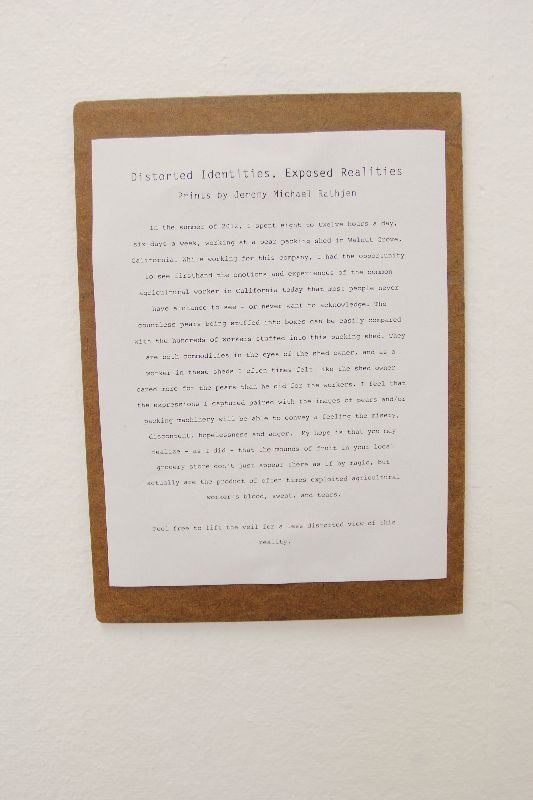 Distorted Identities, Exposed Realities
Prints by Jeremy Michael Rathjen
In the summer of 2012, I spent eight to twelve hours a day,
six days a week, working at a pear packing shed in Walnut Grove,
California. While working for this company, I had the opportunity
to see firsthand the emotions and experiences of the common
agricultural worker in California today that most people never
have a chance to see - or never want to acknowledge. The
countless pears being stuffed into boxes can be easily compared
with the hundreds of workers stuffed into this packing shed. They
are both commodities in the eyes of the shed owner, and as a
worker in these sheds I often times felt like the shed owner
cared more for the pears than he did for the workers. I feel that
the expressions I captured paired with the images of pears and/or
packing machinery will be able to convey a feeling the misery,
discontent, hopelessness and anger. My hope is that you may
realize - as I did - that the mounds of fruit in your local
grocery store don't just appear there as if by magic, but
actually are the product of often times exploited agricultural
worker's blood, sweat, and tears.
Feel free to lift the veil for a less distorted view of this
reality.